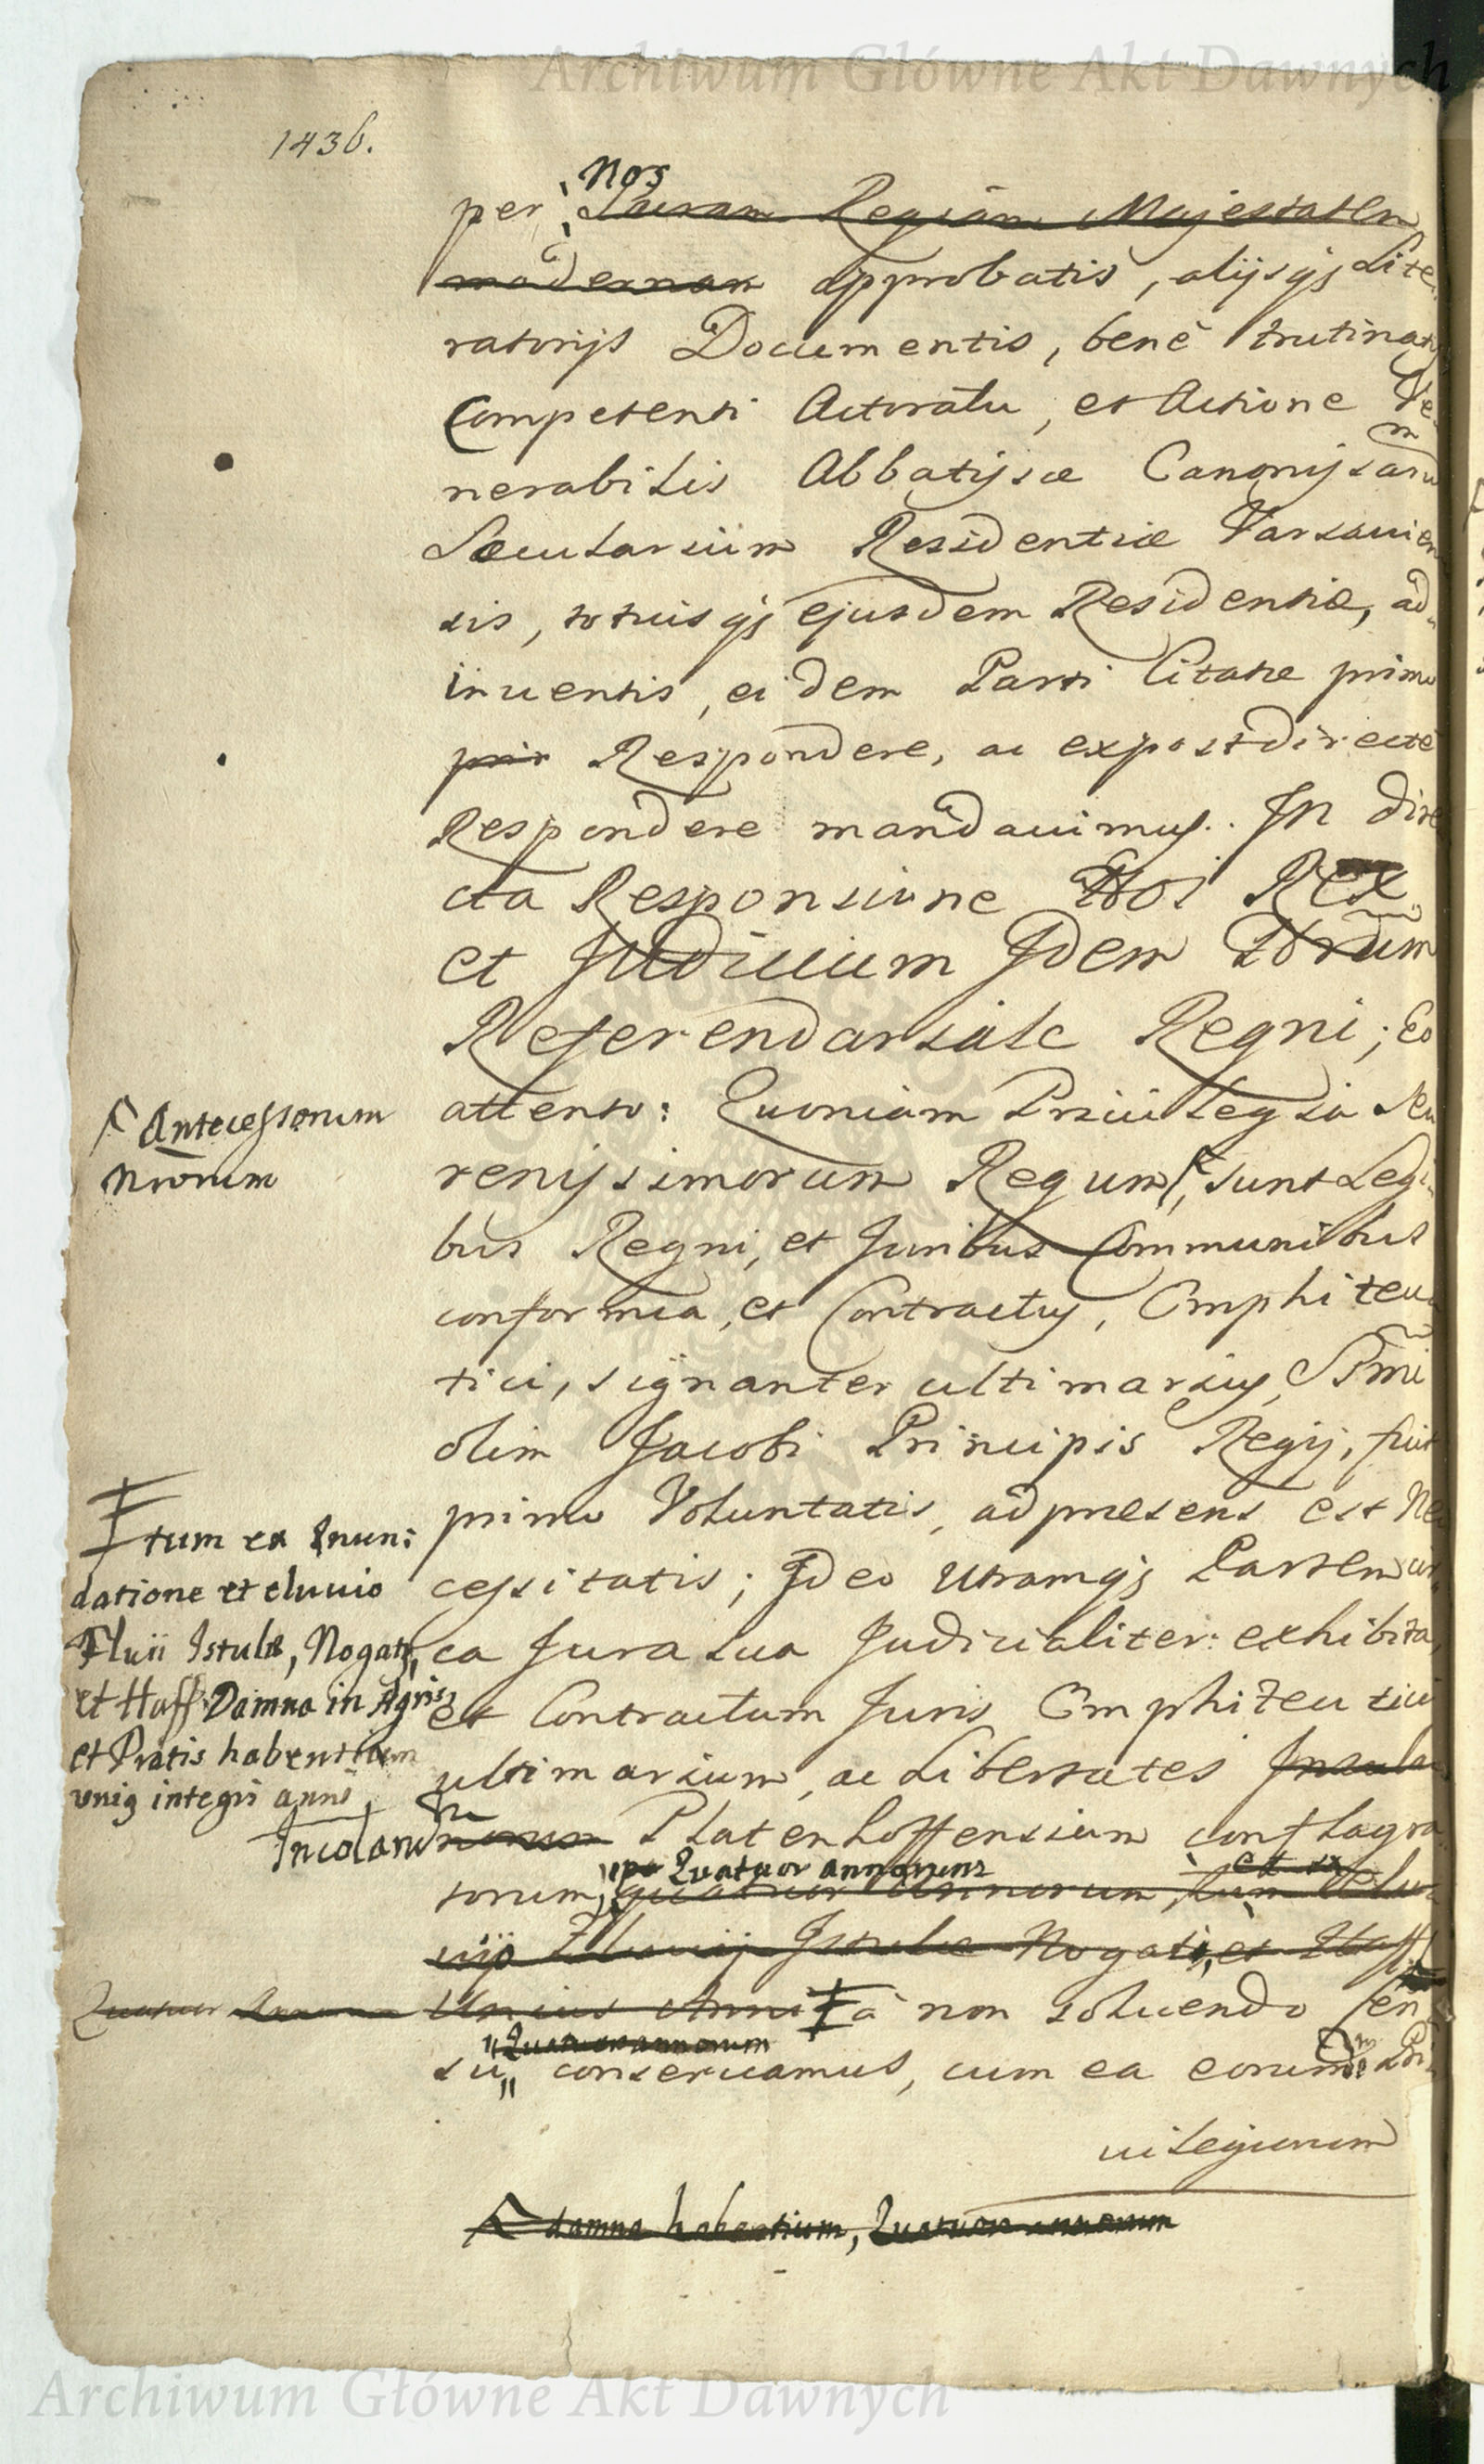 Archiwum Główne Akt Dawnych
1436.
Nos
per Sacram Regiam Majestatem
modernam approbatis, alijsqs Lite
ratorijs Documentis, benè trutinatis
Competenti Actoratu, et Actione Ve
nerabilis Abbatissæ Canonissarum
Sæcularium Residentiæ Varsavien
sis, totiusqs ejusdem Residentiæ, ad
inventis, eidem Parti Citatæ primo
prir Respondere, ac expost directè
Respondere mandavimus. In dire
cta Responsione Nos Rex
et Judicium Idem Nrum
Referendariale Regni; Eo
attento: Quoniam Privilegia Se
renissimorum Regum, sunt Legi
^ Antecessorum
Nrorum
bus Regni, et Juribus Communibus
conformia, et Contractus, Emphiteu
tici, signanter ultimarius, Srmi
olim Jacobi Principis Regij, fuit
primo Voluntatis, ad præsens est Ne
cessitatis; Ideo Utramqs Partem cir
ca Jura sua Judicialiter exhibita,
et Contractum Juris Emphiteutici
ultimarium, ac Libertates Insula
norum Platenhoffensium conflagra
Incolarum
torum, quatuor Annorum, tum Elu
po Quatuor annorum
et ex
vijo Fluvij Istulæ Nogati, et Haff
Unius Anni à non solvendo Cen
Quatuor Annorum
‡ tum ex Inun:
datione et eluvio
Fluii Istulæ, Nogati,
et Haff Damna in Agris
et Pratis habentium
unius integri anni
su conservamus, cum ea eorum Pri
Quatuor annorum
vilegiorum
damna habentium, Quatuor annorum
Archiwum Główne Akt Dawnych